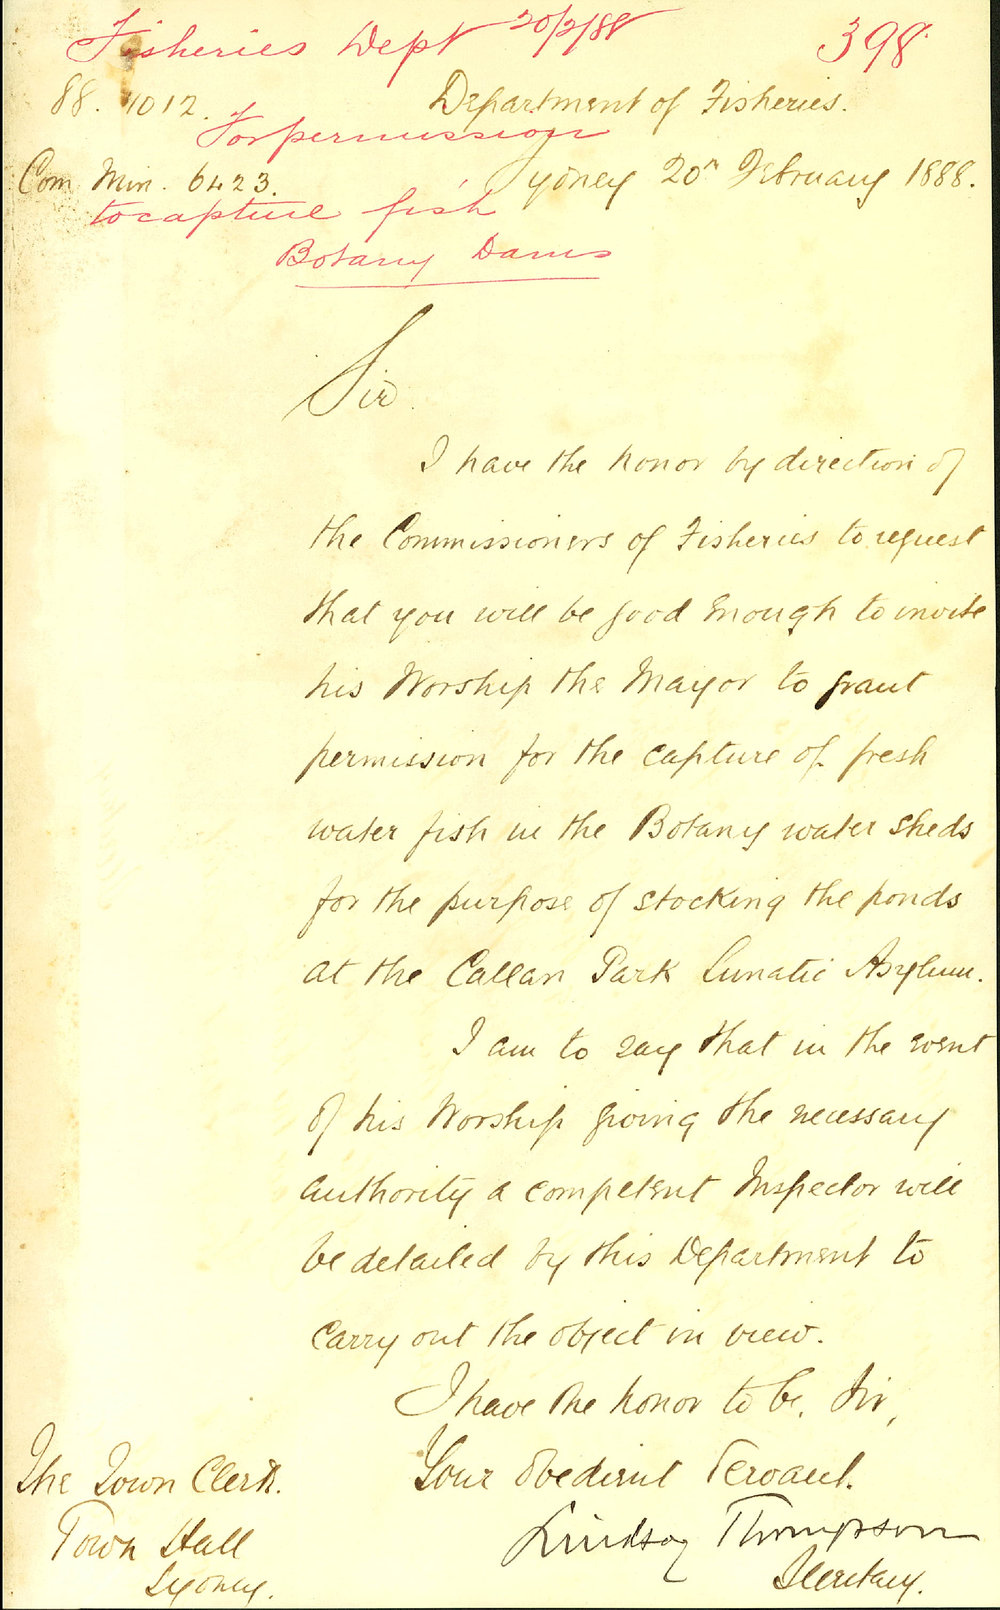 Fisheries Dept 20/2/88
398
88. 1012.
Department of Fisheries.
For permission
Com Min. 6423.
Sydney 20th February 1888.
to capture fish
Botany Dams
Sir
I have the honor by direction of
the Commissioners of Fisheries to request
that you will be good enough to invite
his Worship the Mayor to grant
permission for the capture of fresh
water fish in the Botany water sheds
for the purpose of stocking the ponds
at the Callan Park Lunatic Asylum.
I am to say that in the event
of his Worship giving the necessary
authority a competent Inspector will
be detailed by this Department to
carry out the object in view.
I have the honor to be, Sir,
Your Obedient Servant.
Lindsay Thompson
Secretary.
The Town Clerk.
Town Hall
Sydney.